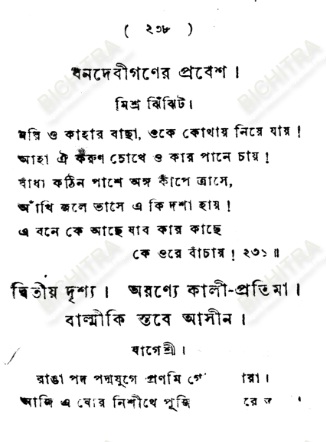 ( ২৩৮ )
বনদেবীগণের প্রবেশ ।
মিশ্র ঝিঁঝিট ।
মরি ও কাহার বাছা, ওকে কোথায় নিয়ে যায় !
আহা ঐ করুণ চোখে ও কার পানে চায় !
বাঁধা কঠিন পাশে অঙ্গ কাঁপে ত্রাসে,
আঁখি জলে ভাসে এ কি দশা হায় !
এ বনে কে আছে যাব কার কাছে
কে ওরে বাঁচায় ! ২৩১ ॥
দ্বিতীয় দৃশ্য । অরণ্যে কালী-প্রতিমা ।
বাল্মীকি স্তবে আসীন ।
বাগেশ্রী ।
রাঙা পদ পদ্মযুগে প্রণমি গো
আজি এ ঘোর নিশীথে পূজি
BICHITRA